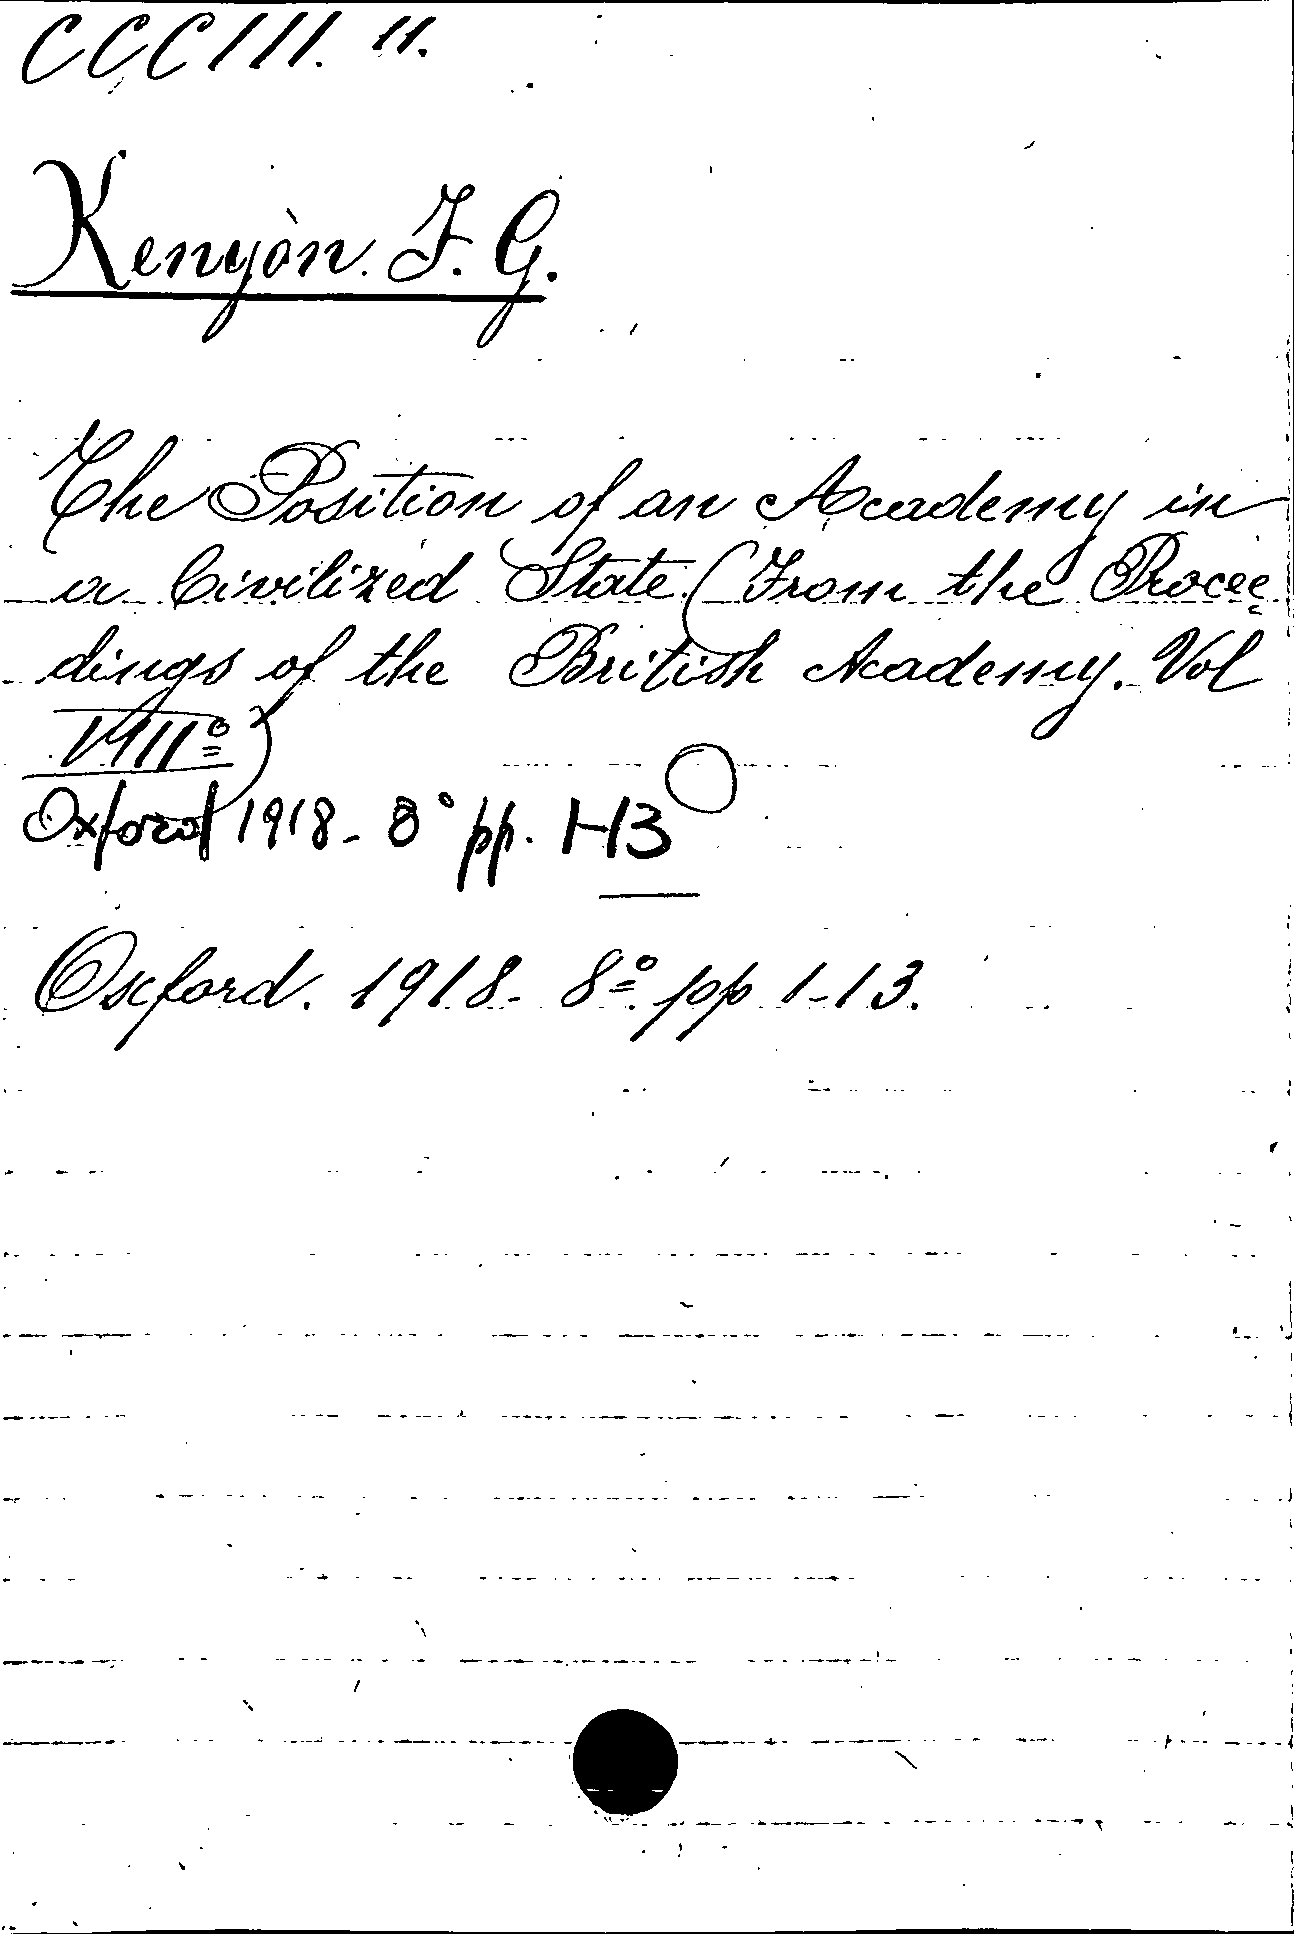 CCCIII. 11.
Kenyon. F. G.
The Position of an Academy in
a Civilized State (From the Procee=
dings of the British Academy. Vol
VIIIº)
Oxford 1918- 8º pp. 1-13
Oxford. 1918- 8º pp 1-13.